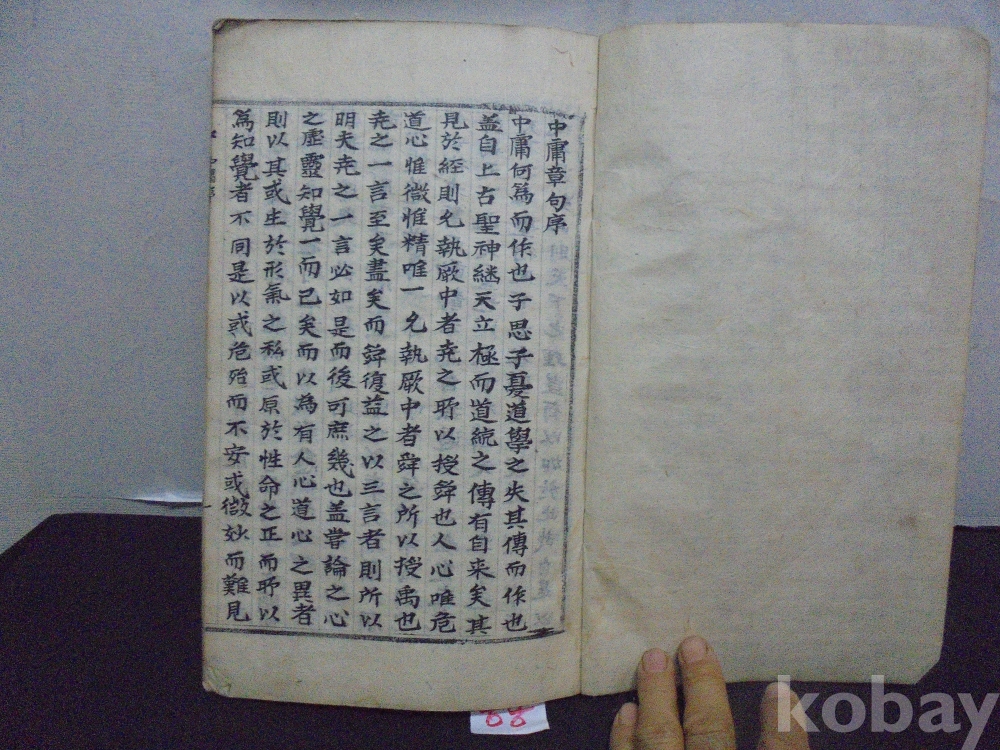 中庸章句序
中庸何爲而作也子思子憂道學之失其傳而作也
盖自上古聖神継天立極而道統之傳有自来矣其
見於經則允執厥中者尭之所以授舜也人心唯危
道心惟微惟精唯一允執厥中者舜之所以授禹也
尭之一言至矣盡矣而舜復益之以三言者則所以
明夫尭之一言必如是而後可庶幾也盖嘗論之心
之虛靈知覺一而已矣而以為有人心道心之異者
則以其或生於形氣之私或原於性命之正而所以
爲知覺者不同是以或危殆而不安或微妙而難見
中庸序
一
88
kobay